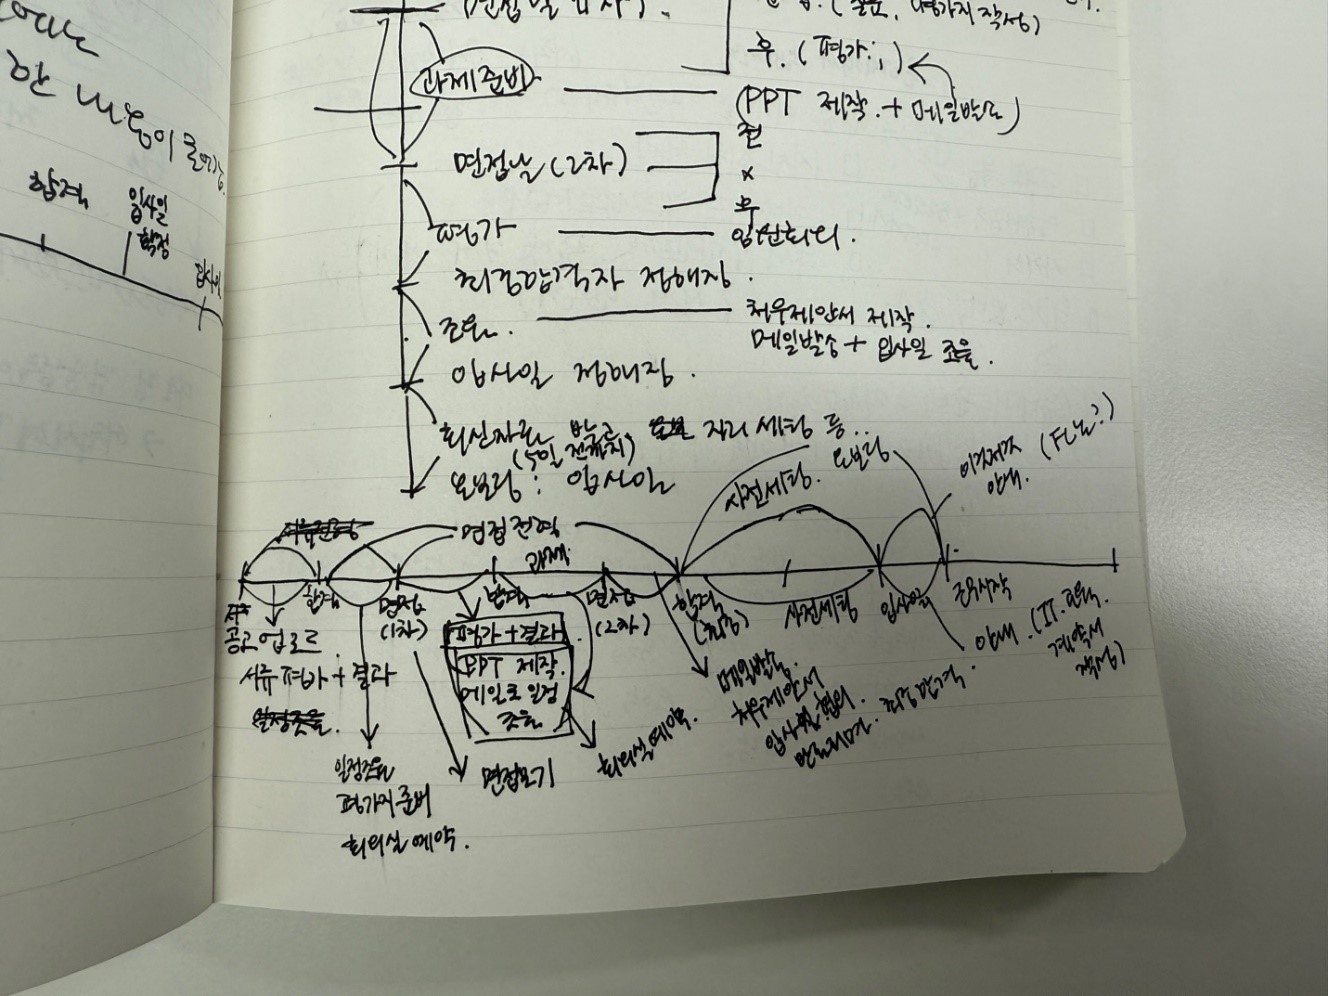 합격
입사일
확정
입사일
과제준비
후. (평가;;)
(PPT 제작. + 메일발송)
면접날 (2차)
전
x
후
평가
임원회의.
최종합격자 정해짐.
조율.
처우제안서 제작.
메일발송 + 입사일 조율.
입사일 정해짐.
회신자료 받고 자리 세팅 등..
(5일 전까지)
온보딩 : 입사일
서류전형
면접전형
사전세팅.
온보딩
이것저것
안내.
과제
합격
면접
(1차)
합격
면접
(2차)
합격
(최종)
사전세팅
입사일
근무시작
공고 업로드
서류 평가 + 결과
일정조율.
평가 + 결과.
PPT 제작.
메일로 일정
조율
일정조율
평가지 준비
회의실 예약.
면접보기
회의실 예약.
메일발송.
처우제안서
입사일 협의.
최종 합격.
안내. (IT.
계약서
작성)